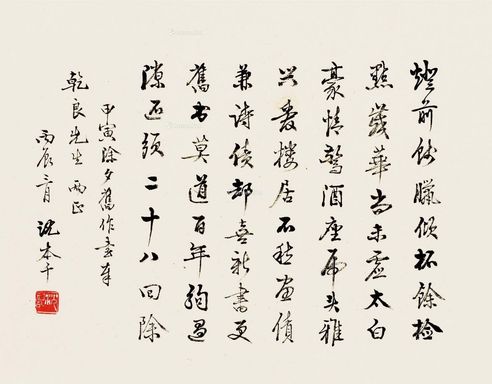 燈前餞臘傾杯餘檢
點歲華尚未虛太白
豪情驚酒座虎头雅
興愛樓居不愁畫債
兼詩債却喜新書更
舊書莫道百年駒過
隙还須二十八回除
甲寅除夕舊作書奉
乾良先生两正
丙辰二月 沈本千